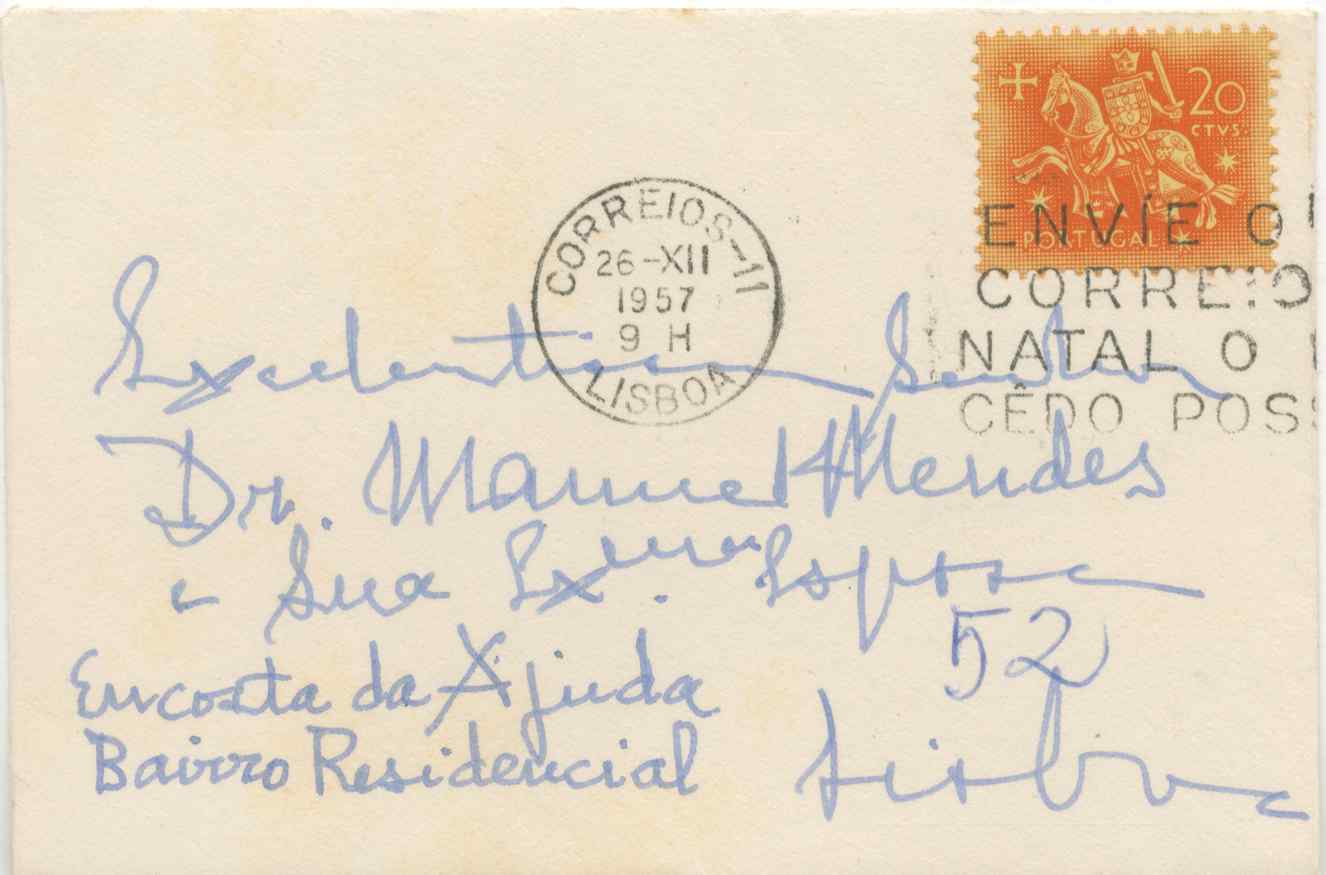 20
CTVS.
PORTUGAL
CORREIOS-11
26-XII
1957
9 H
LISBOA
ENVÍE O
CORREIO
NATAL O
CÊDO POSS
Excelentissimo Senhor
Dr. Manuel Mendes
e Sua Exma. Esposa
52
Encosta da Ajuda
Bairro Residencial
Lisboa